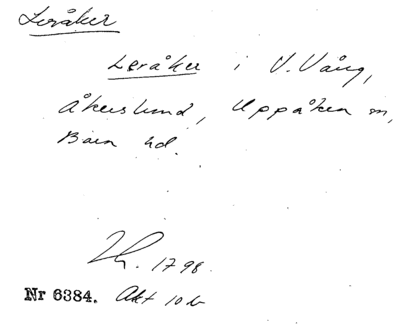 Leråker
Leråker i V. Vång,
Åkerslund, Uppåkra sn,
Bara hd.
1798.
Nr 6384. Akt 10b